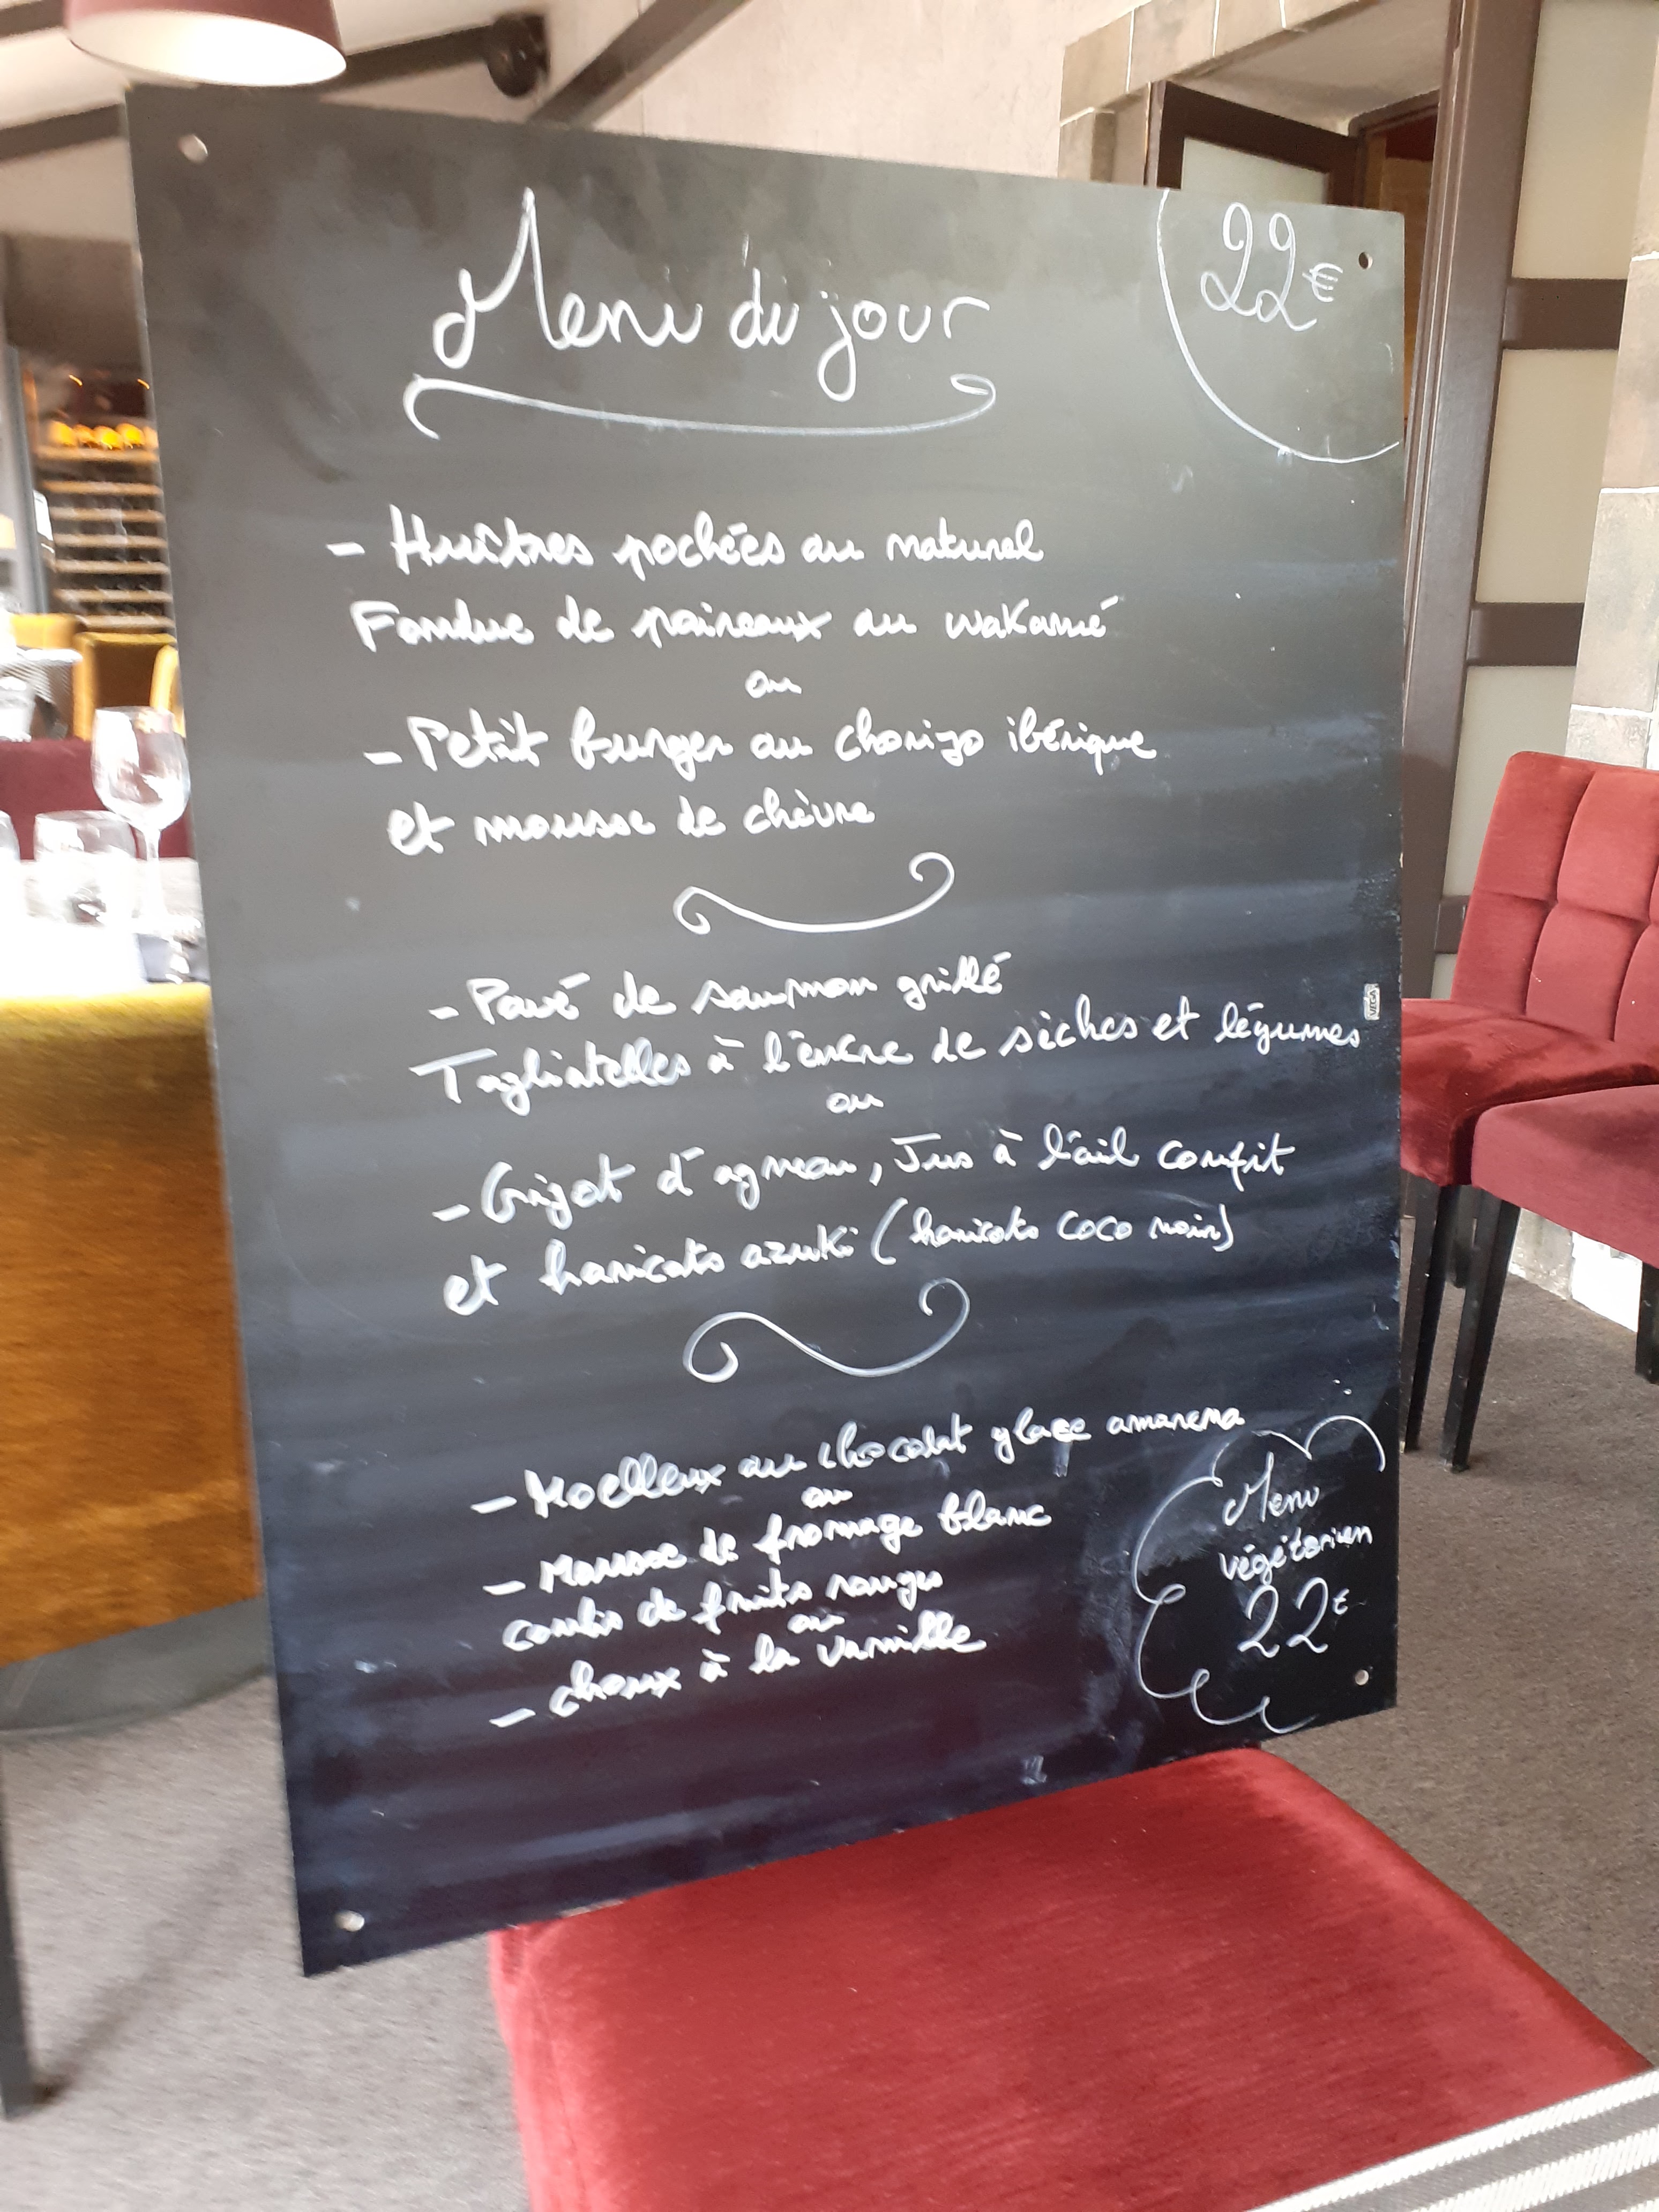 Menu du jour
22€
- Huîtres pochées au naturel
Fondue de poireaux au wakamé
ou
- Petit burger au chorizo ibérique
et mousse de chèvre
- Pavé de saumon grillé
Tagliatelles à l'encre de sèches et légumes
ou
- Gigot d'agneau, Jus à l'ail confit
et haricots azuki (haricots coco noir)
- Moelleux au chocolat glace amarena
ou
- Mousse de fromage blanc
coulis de fruits rouges
ou
- choux à la vanille
Menu
végétarien
22€